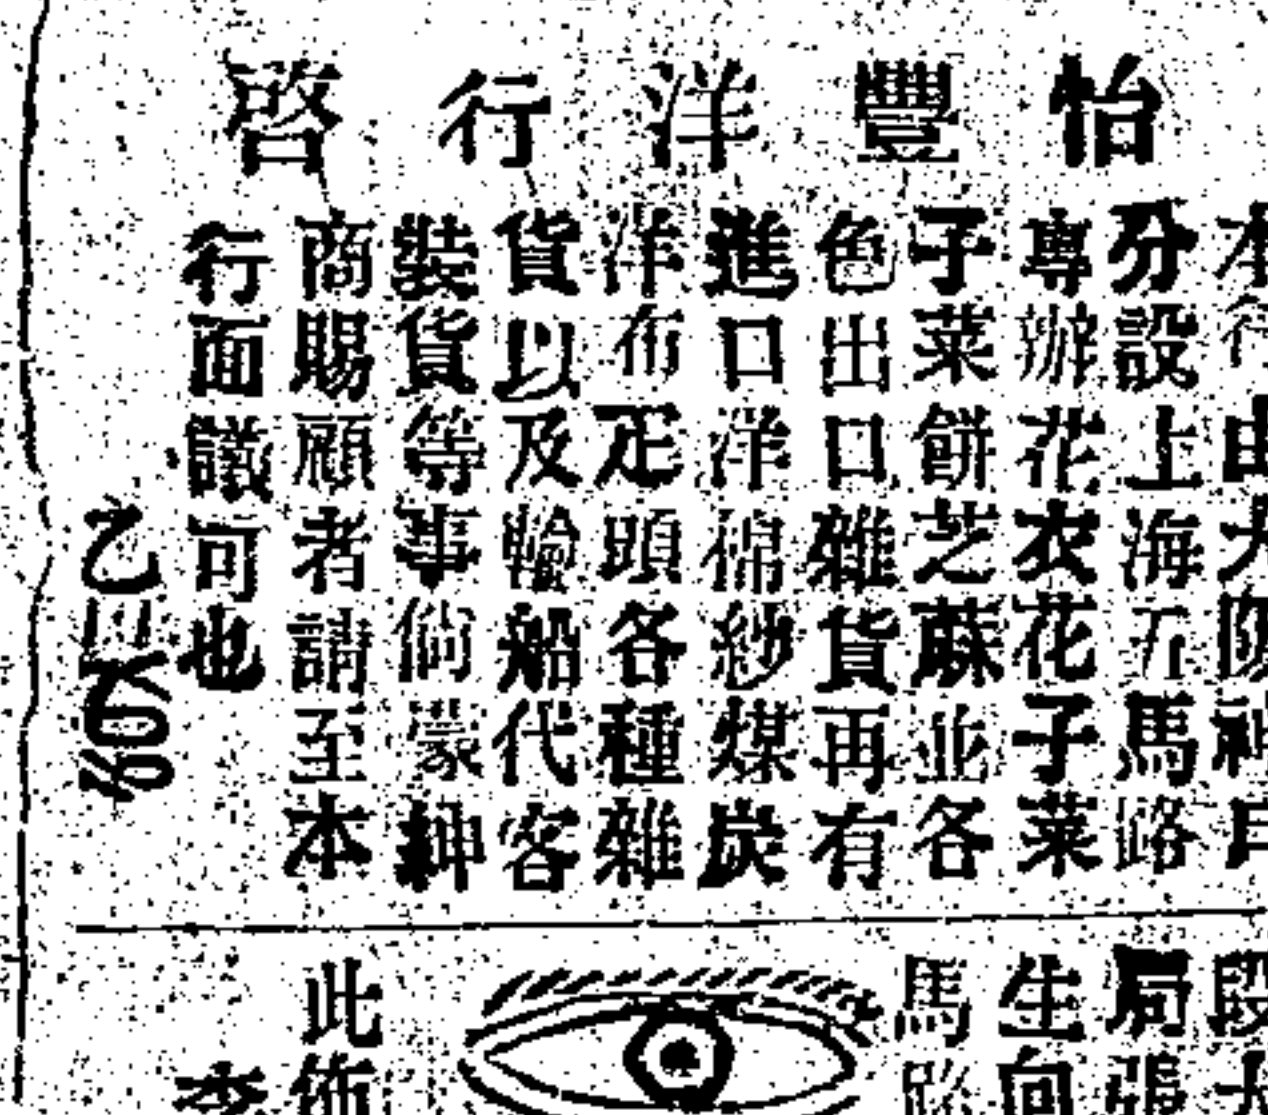 怡豐洋行啓
本行由大阪神戶
分設上海五馬路
專辦花衣花子菜
子菜餅芝蔴並各
色出口雜貨再有
進口洋棉紗煤炭
洋布疋頭各種雜
貨以及輪船代客
裝貨等事倘蒙紳
商賜顧者請至本
行面議可也
局
生向
馬路
此佈